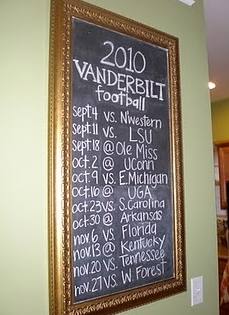 2010
VANDERBILT
football
sept4 vs. N'western
sept.11 vs. LSU
sept.18 @ Ole Miss
oct.2 @ UConn
oct.9 vs. E.Michigan
oct.16 @ UGA
oct23 vs. S.Carolina
oct30 @ Arkansas
nov.6 vs. Florida
nov.13 @ Kentucky
nov.20 vs. Tennessee
nov.27 vs. W. Forest